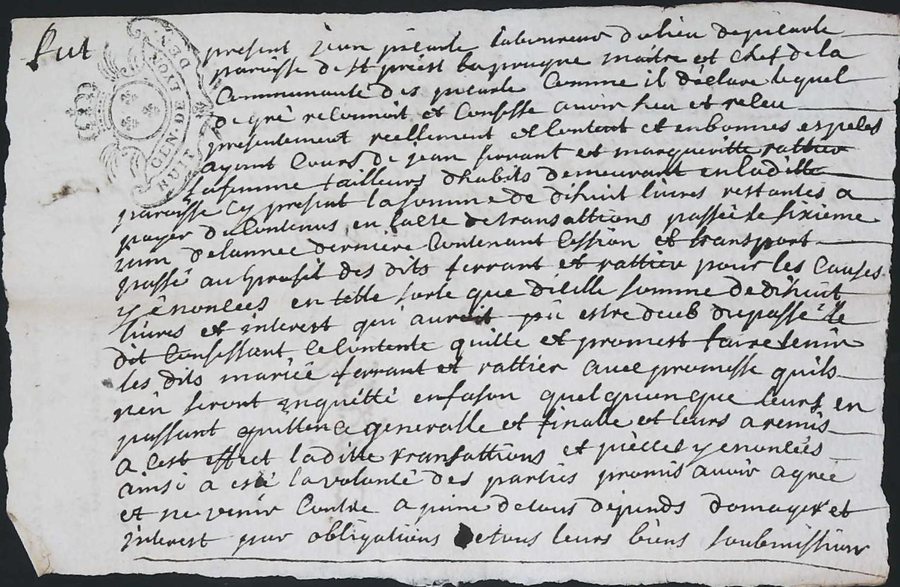 fut present jean pitarle laboureur du lieu de pitarle
paroisse de st priest la prugne maitre et chef de la
Communauté des pitarle Comme il déclare lequel
de gré reconnoit et Confesse avoir heu et releu
presentement reellement et Content et en bonnes espeses
ayant Cours de jean ferrant et margueritte rattier
sa femme tailleurs d'habits demeurant en la ditte
paroisse Cy present la somme de dihuit livres restantes a
payer du Contenus en lacte de transattions passée le sixieme
juin de lannee derniere Contenant Cession et transport
passé au profit des dits ferrant et rattier pour les Causes
y énoncées en telle sorte que dicelle somme de dihuit
livres et interest qui auroit pû estre deub du passé le
dit Confessant Ce Contente quitte et promest faire tenir
les dits mariés ferrant et rattier avec promesse quils
nên seront inquétté en fason quelquonque leurs en
passant quittence generalle et finalle et leurs a remis
a cest effect laditte transattions et pièces y enoncées
ainsi a esté la volonté des parties promis avoir agréé
et ne venir Contre a peine de tous dépends domages et
interest par obligations de tous leurs biens soubmissions
HUIT DEN
GEN DE LYON